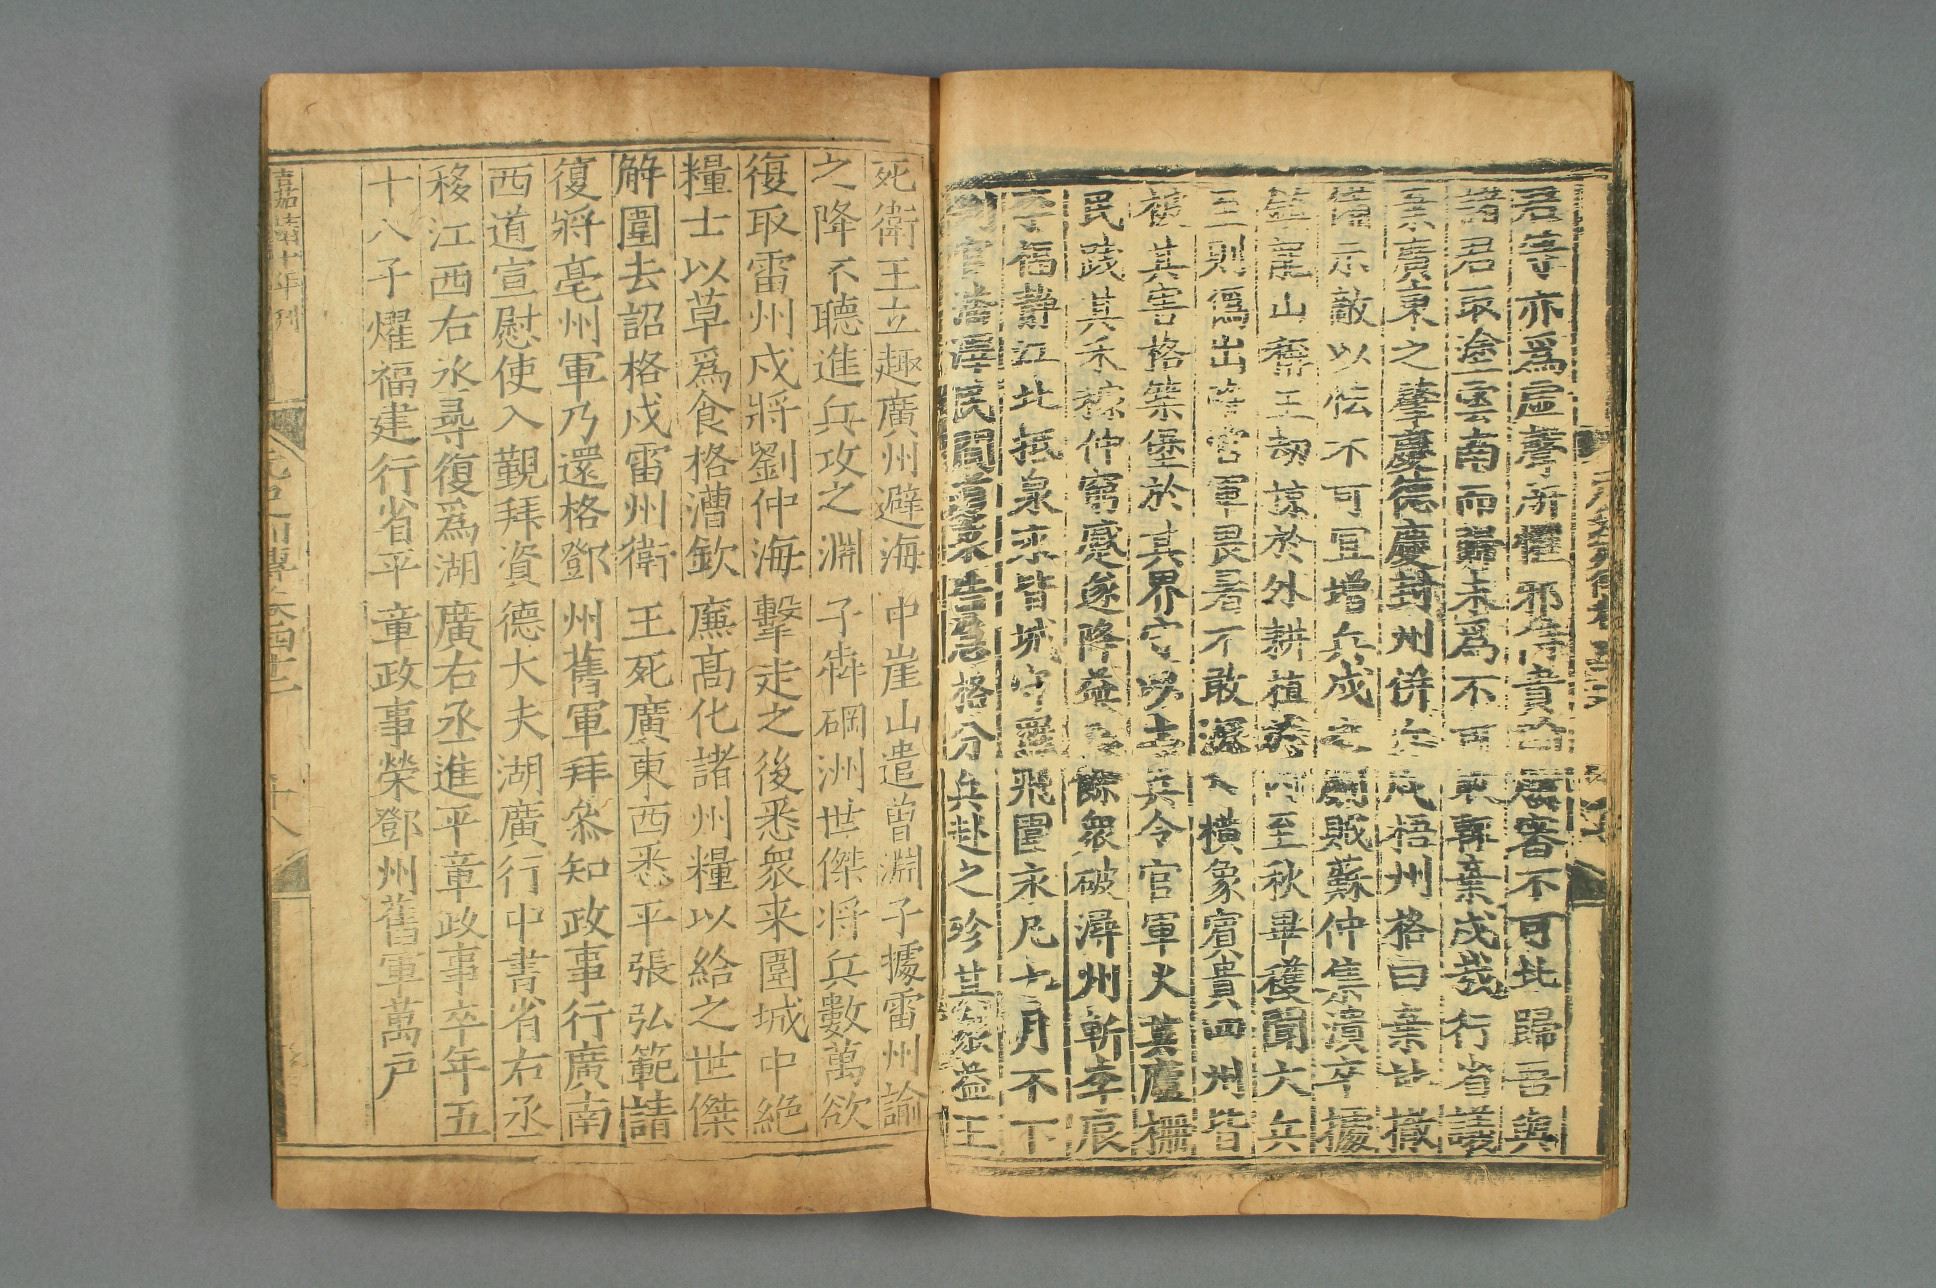 君等亦爲虛聲所懼邪待貴省審不可北歸吾與
諸君取塗雲南而歸未爲不可敢輕棄戍哉行省議
棄廣東之肇慶德慶封州併兵戍梧州格曰棄地撤
備示敵以怯不可宜增兵戍之劇賊蘇仲集潰卒據
鎮龍山稱王劫掠於外耕植
至秋畢穫聞大兵
至則爲出降官軍畏暑不敢深入橫象賓貴四州皆
被其害格築堡於其界守以士兵令官軍火其廬柵
民踐其禾稼仲窮蹙遂降益
餘衆破潯州斬李辰
李福靜江北抵泉永皆城守羅飛圍永凡七月不下
判官潘澤民間道來告急格分兵赴之殄其衆益王
死衛王立趣廣州避海中崖山遣曾淵子據雷州諭
之降不聽進兵攻之淵子犇碙洲世傑將兵數萬欲
復取雷州戍將劉仲海擊走之後悉衆来圍城中絕
糧士以草爲食格漕欽廉高化諸州糧以給之世傑
解圍去詔格戍雷州衛王死廣東西悉平張弘範請
復將亳州軍乃還格鄧州舊軍拜叅知政事行廣南
西道宣慰使入覲拜資德大夫湖廣行中書省右丞
移江西右丞尋復爲湖廣右丞進平章政事卒年五
十八子燿福建行省平章政事榮鄧州舊軍萬戶
嘉靖十年刊
元史列傳卷四十二
十八